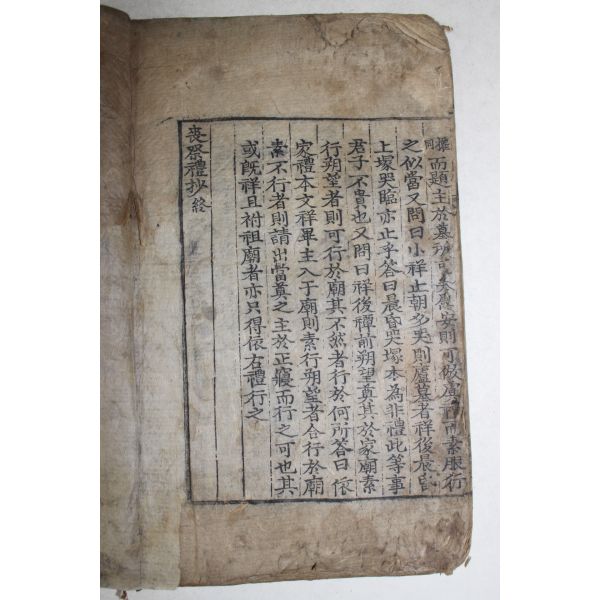 而題主於墓所 則可依虞禮而素服行
之似當又問曰小祥止朝夕哭則廬墓者祥後晨昏
上塚哭臨亦止乎答曰晨昏哭塚本爲非禮此等事
君子不貴也又問曰祥後禫前朔望奠其於家廟素
行朔望者則可行於廟其不然者行於何所答曰依
家禮本文祥畢主入于廟則素行朔望者合行於廟
素不行者則請出當奠之主於正寢而行之可也其
或旣祥且祔祖廟者亦只得依右禮行之
喪祭禮抄 終